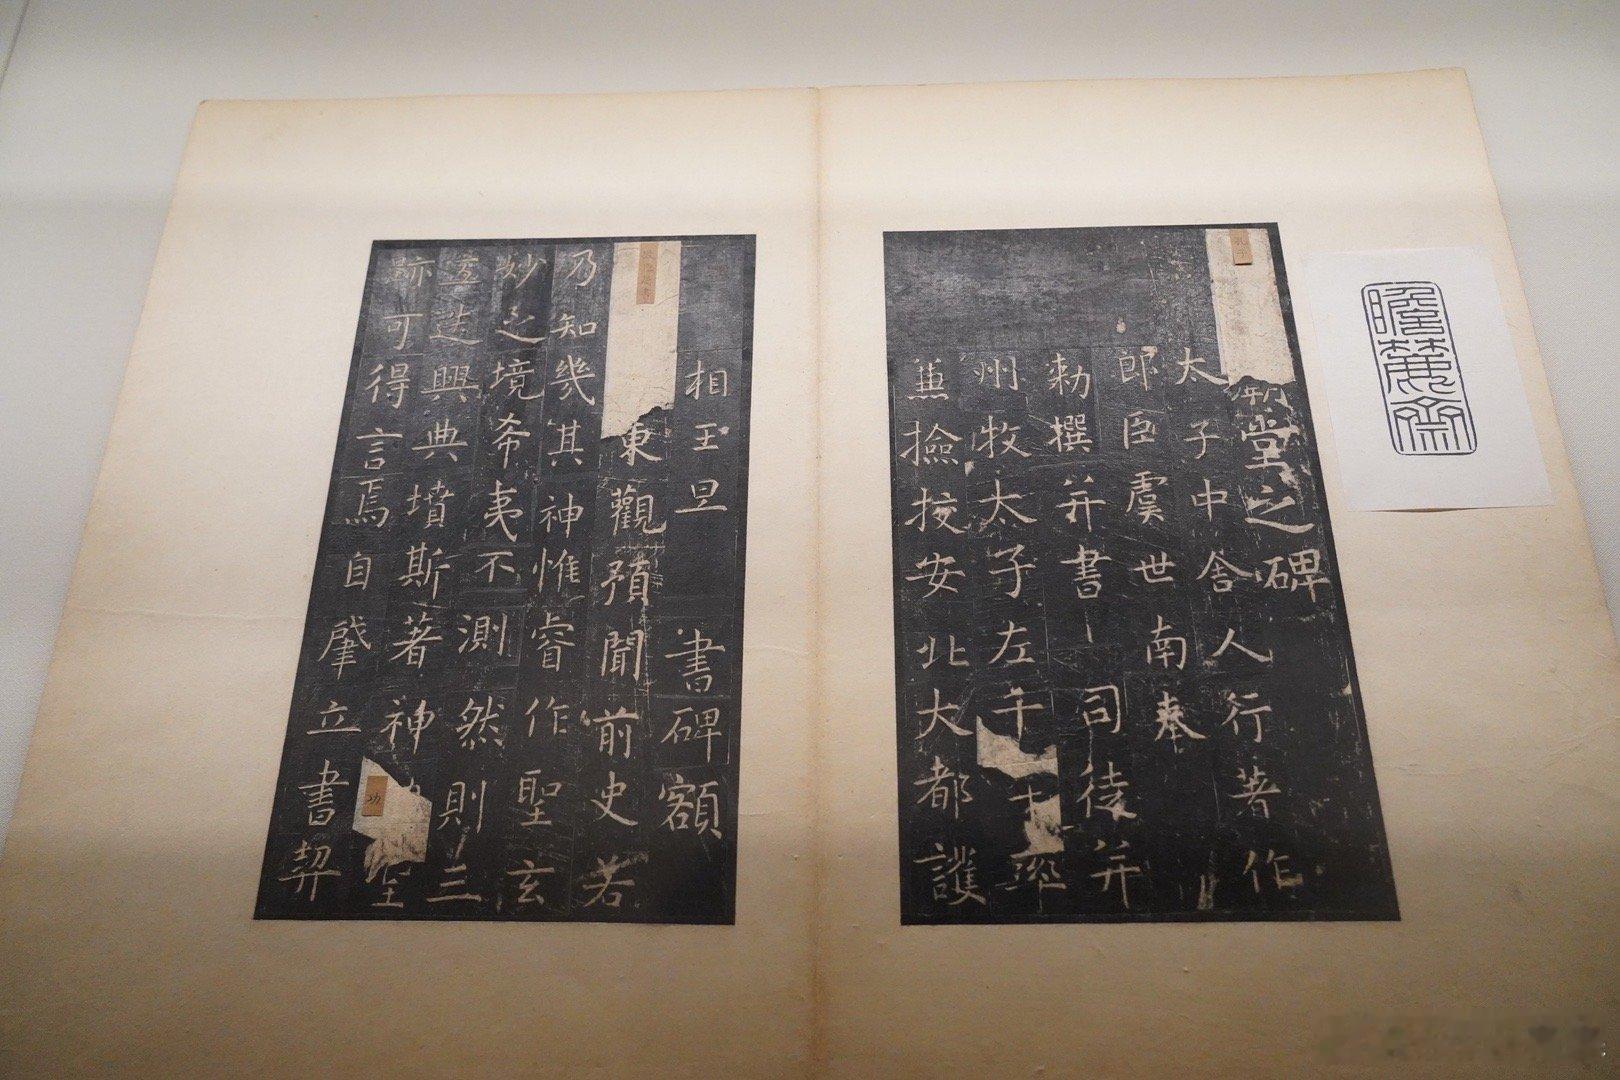 孔子
廟堂之碑
太子中舍人行著作
郎臣虞世南奉
勑撰并書 司徒并
州牧太子左千牛率
兼撿挍安北大都護
相王旦 書碑額
微臣屬書東觀預聞前史若
乃知幾其神惟睿作聖玄
妙之境希夷不測然則三
五迭興典墳斯著神功聖
迹可得言焉自肇立書契